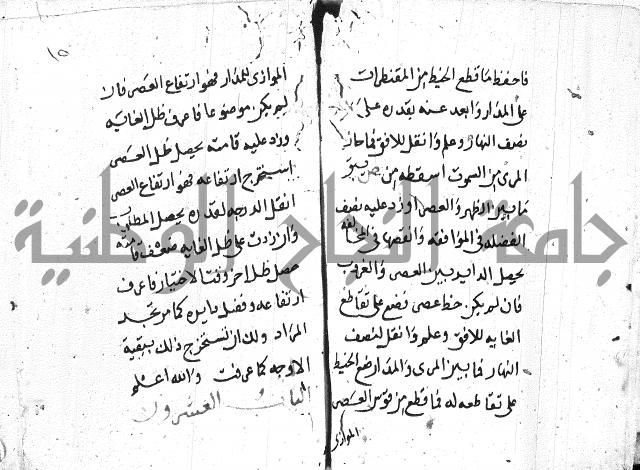 فاحفظ ما قطع الخيط من المقنطرات
على المدار وابعد عنه بقدره على
نصف النهار وعلم وانقل للافق فما حاز
المرى من السموت اسقطه من ص يبق
ما بين الظهر والعصر او زد عليه نصف
الفضله في الموافقه وانقصها في المخالفه
يحصل الداير بين العصر والغروب
فان لم يكن خط عصر فضع على تقاطع
الغايه للافق وعلم وانقل لنصف
النهار فما بين المرى والمدار ضع الخيط
على تقاطعه له فما قطع من قوس العصر
الموازى
١٥
الموازى للمدار فهو ارتفاع العصر فالا
لم يكن موضوعا فاعرف ظل الغايه
وزد عليه قامه يحصل ظل العصر
استخرج ارتفاعه فهو ارتفاع العصر
انقل الدرجه لقدره يحصل المطلوب
وان زدت على ظل الغايه ضعف قامه
حصل ظل اخر وقت الاختيار فاعرف
ارتفاعه وفضل دايره كما مر تجد
المراد ولك ان تستخرج ذلك ببقية
الاوجه كما عرفت والله اعلم
الباب العشرون
جامعة النجاح الوطنية